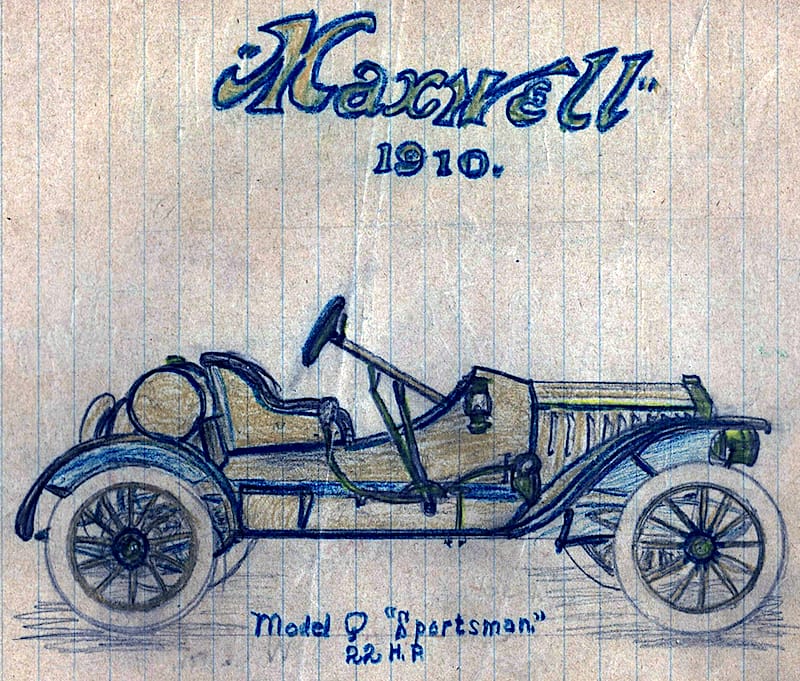 "Maxwell"
1910.
Model Q "Sportsman."
22 H.P